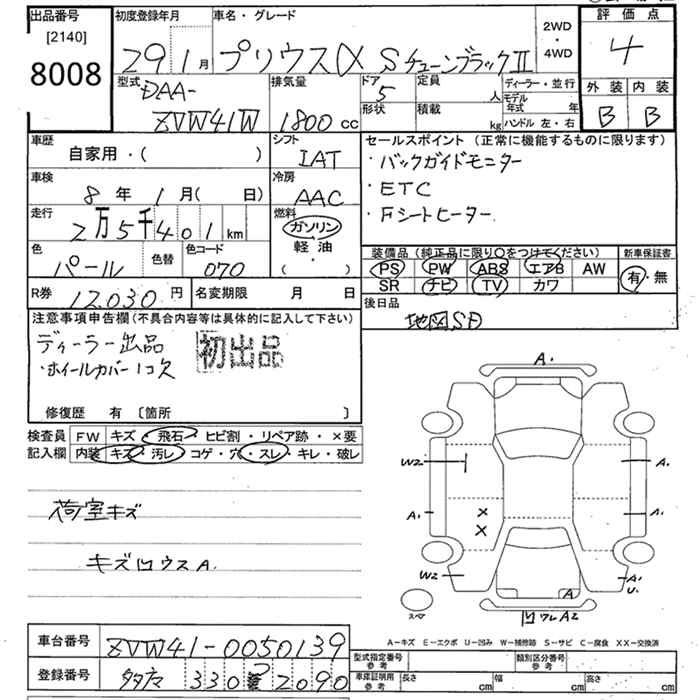 出品番号
[2140]
8008
初度登録年月
29 1月
車名・グレード
プリウスα Sチューンブラック II
2WD
・
4WD
評価点
4
外装 内装
B B
型式
DAA-
ZVW41W
排気量
1800 cc
ドア
5
定員
人
形状
積載
kg
ディーラー・並行
モデル
年式 年
ハンドル 左・右
車歴
自家用・( )
シフト
IAT
車検
8年 1月( 日)
冷房
AAC
走行
2万5千401 km
燃料
ガソリン
軽油
( )
色
パール
色替
色コード
070
セールスポイント (正常に機能するものに限ります)
・バックガイドモニター
・ETC
・Fシートヒーター
装備品(純正品に限り○をつけてください)
PS PW ABS エアB AW
SR ナビ TV カワ
新車保証書
有・無
R券 12,030円
名変期限 月 日
後日品
地図SD
注意事項申告欄(不具合内容等は具体的に記入して下さい)
ディーラー出品
初出品
・ホイールカバー1コ欠
修復歴 有 〔箇所 〕
検査員
記入欄
FW キズ・飛石・ヒビ割・リペア跡・×要
内装 キズ・汚レ・コゲ・穴・スレ・キレ・破レ
荷室キズ
キズ凹ウスA.
A.
W2
A.
A.
A.
×
×
W2
A.
U.
A
スペア
凹ワレA2
A-キズ E-エクボ U-凹み W-補修跡 S-サビ C-腐食 XX-交換済
車台番号
ZVW41-0050139
登録番号
多摩 330 2090
型式指定番号
参考
類別区分番号
参考
車庫証明用
参考
長さ cm
幅 cm
高さ cm